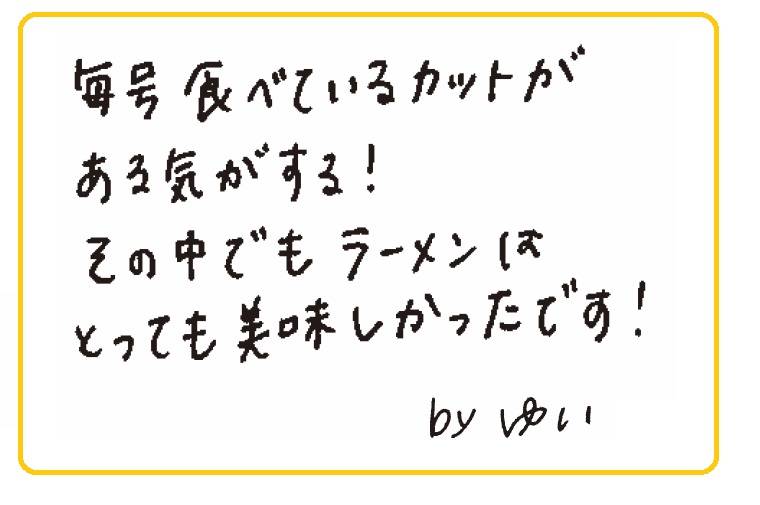 毎号食べているカットが
ある気がする!
その中でもラーメンは
とっても美味しかったです!
by ゆい